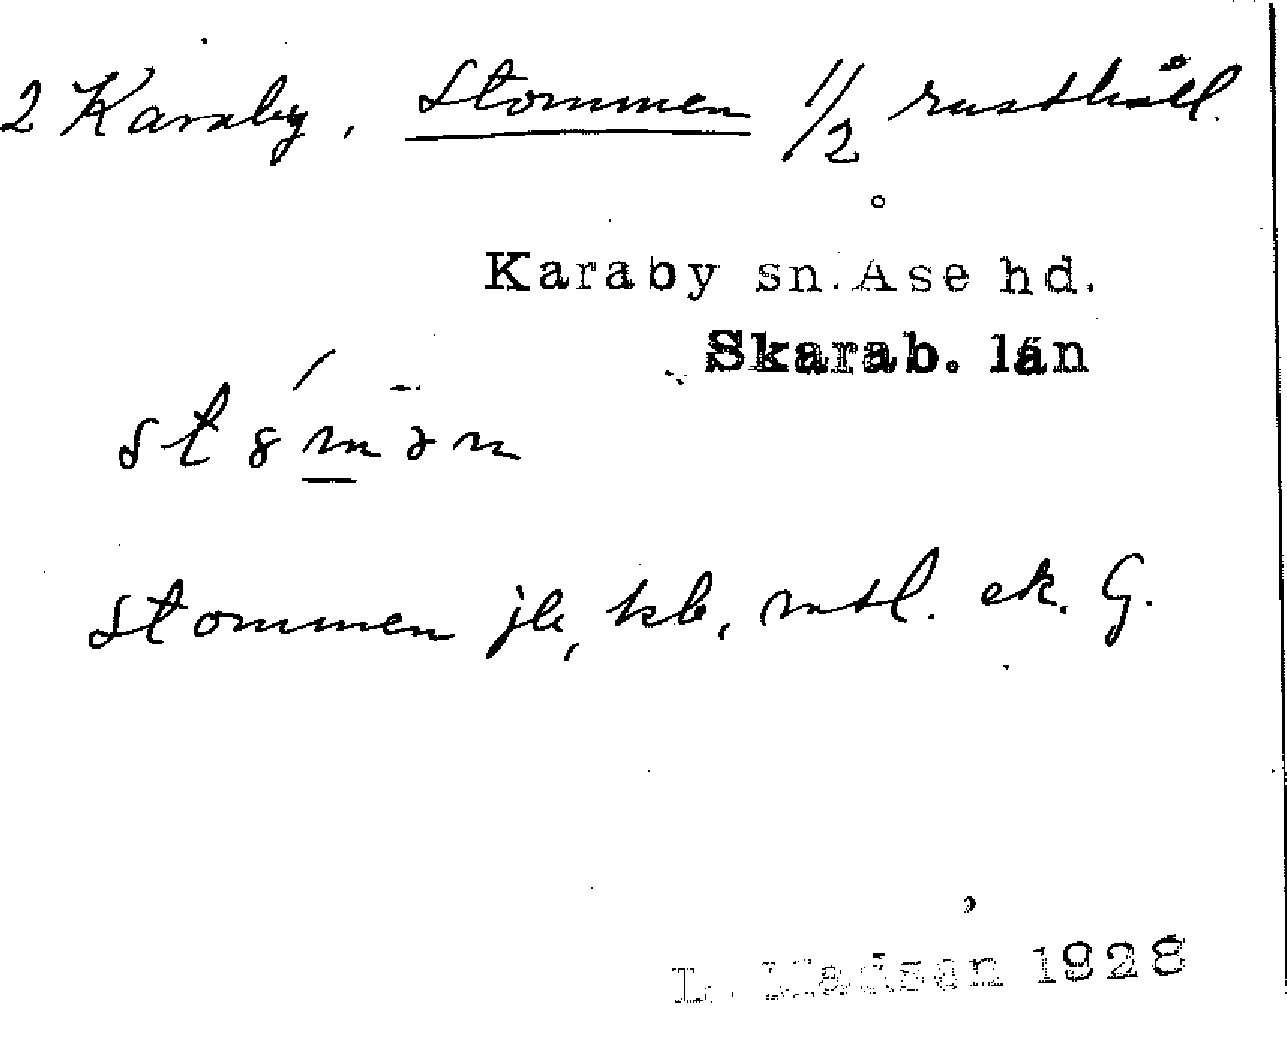 2 Karaby, Stommen 1/2 rusthåll.
Karaby sn. Åse hd.
Skarab. län
Stommen jb, kb, mtl. ek. G.
L. Madsén 1928